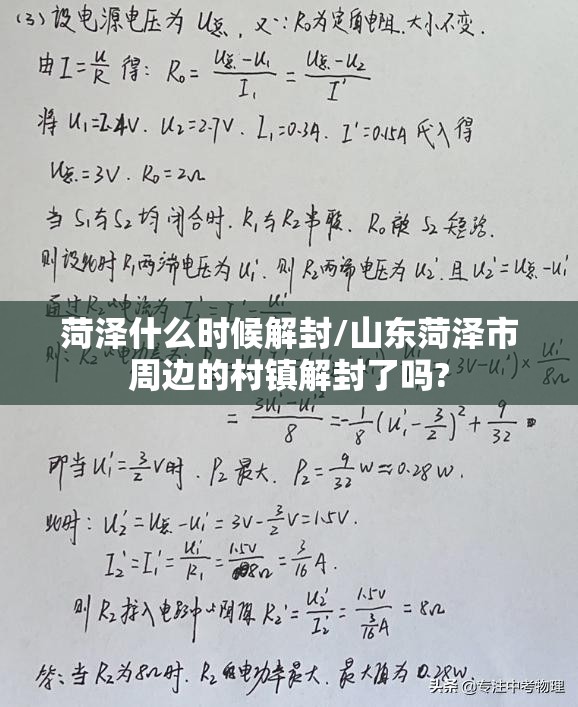 (3) 设电源电压为 U总，又∵R₀为定值电阻，大小不变．
由 I=U/R 得：R₀ = (U总-U₁)/I₁ = (U总-U₂)/I'
将 U₁=2.4V．U₂=2.7V．I₁=0.3A．I'=0.15A 代入得
U总=3V．R₀=2Ω
当 S₁与S₂均闭合时．R₁与R₂串联．R₀被 S₂短路．
则设此时R₁两端电压为U₁'．则R₂两端电压为U₂'．且U₂'=U总-U₁'
菏泽什么时候解封/山东菏泽市
周边的村镇解封了吗?
= (3U₁'-U₁'²)/8 = -1/8(U₁'-3/2)²+9/32
即当U₁'=3/2V时．P₂最大．P₂=9/32W≈0.28W．
此时：U₂'=U总-U₁'=3V-3/2V=1.5V．
I₂'=I₁'=U₁'/R₁=1.5V/8Ω=3/16A．
则R₂接入电路中的阻值R₂'=U₂'/I₂'=1.5V/(3/16A)=8Ω
答：当R₂为8Ω时．R₂的电功率最大．最大值为0.28W．
头条 @专注中考物理